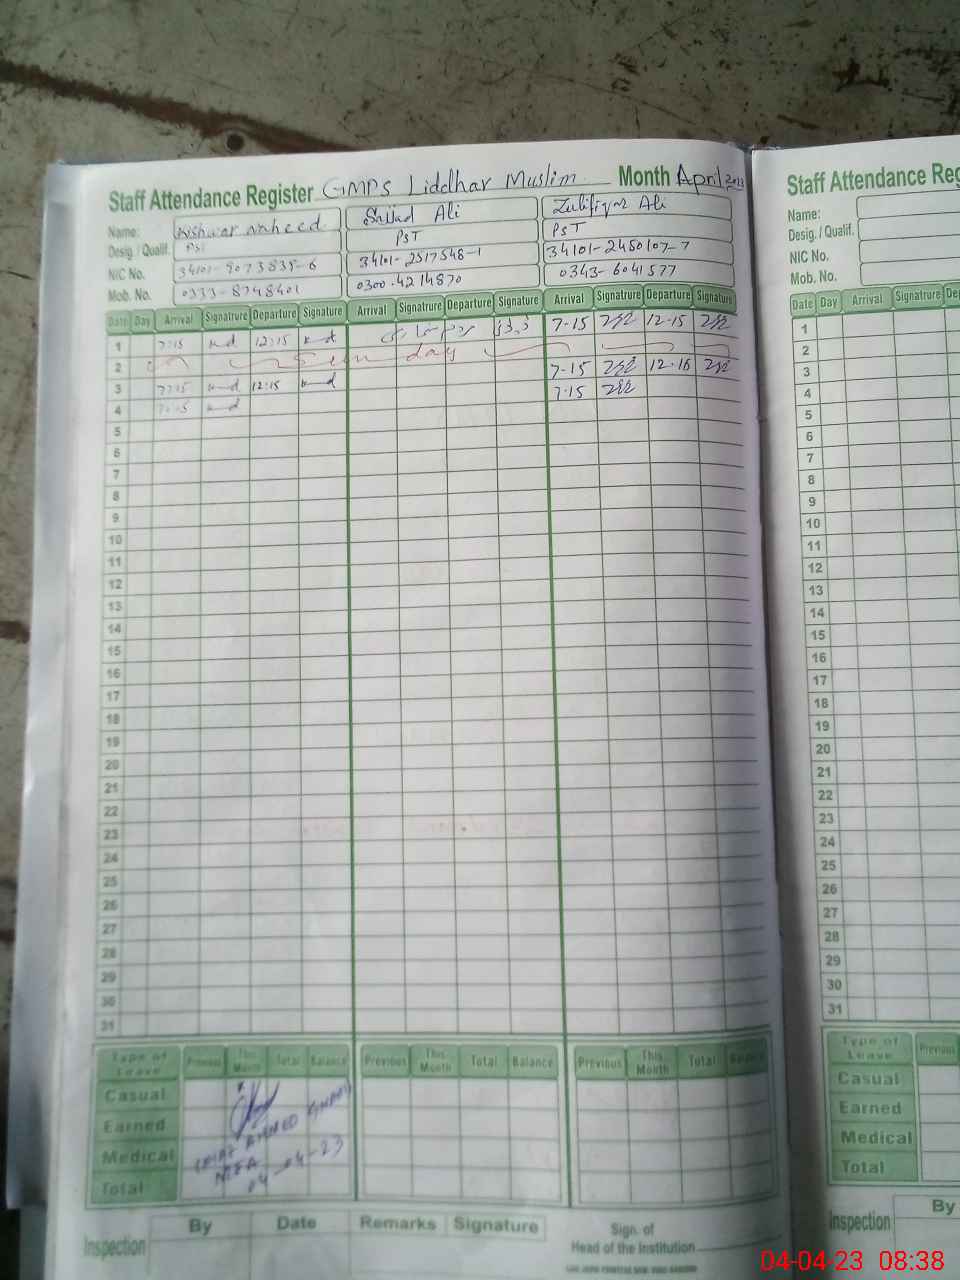 Staff Attendance Register GMPS Liddhar Muslim Month April 2023
Name: Kishwar Naheed Sajjad Ali Zulifiqar Ali
Desig. / Qualif. PST PST PST
NIC No. 34101-9073839-6 34101-2517548-1 34101-2450107-7
Mob. No. 0333-8748401 0300-4214870 0343-6041577
Date Day Arrival Signatrure Departure Signature Arrival Signatrure Departure Signature Arrival Signatrure Departure Signature
1 7:15 12:15 7-15 12-15
2
3 7:15 12:15 7-15 12-16
4 7:15 7-15
5
6
7
8
9
10
11
12
13
14
15
16
17
18
19
20
21
22
23
24
25
26
27
28
29
30
31
Type of Leave Previous This Month Total Balance Previous This Month Total Balance Previous This Month Total Balance
Casual
Earned
Medical
Total
AHMED
04-04-23
By Date Remarks Signature
Inspection
Sign. of
Head of the Institution
Staff Attendance Reg
Name:
Desig. / Qualif.
NIC No.
Mob. No.
Date Day Arrival Signatrure De
1
2
3
4
5
6
7
8
9
10
11
12
13
14
15
16
17
18
19
20
21
22
23
24
25
26
27
28
29
30
31
Type of Leave Previous
Casual
Earned
Medical
Total
By
Inspection
04-04-23 08:38